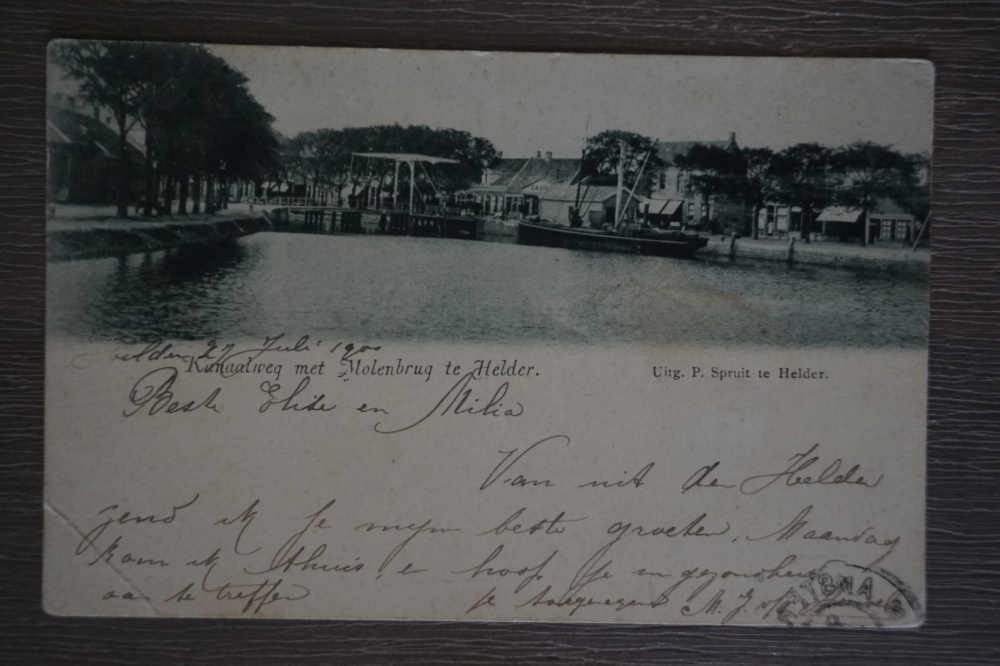 Helder 27 Juli 190
Kanaalweg met Molenbrug te Helder.
Uitg. P. Spruit te Helder.
Beste Elise en Milia
Van uit den Helder
zend ik Je mijn beste groeten, Maandag
kom ik thuis, en hoop Je in gezondheid
aan te treffen
je toegenegen M. J. v/d